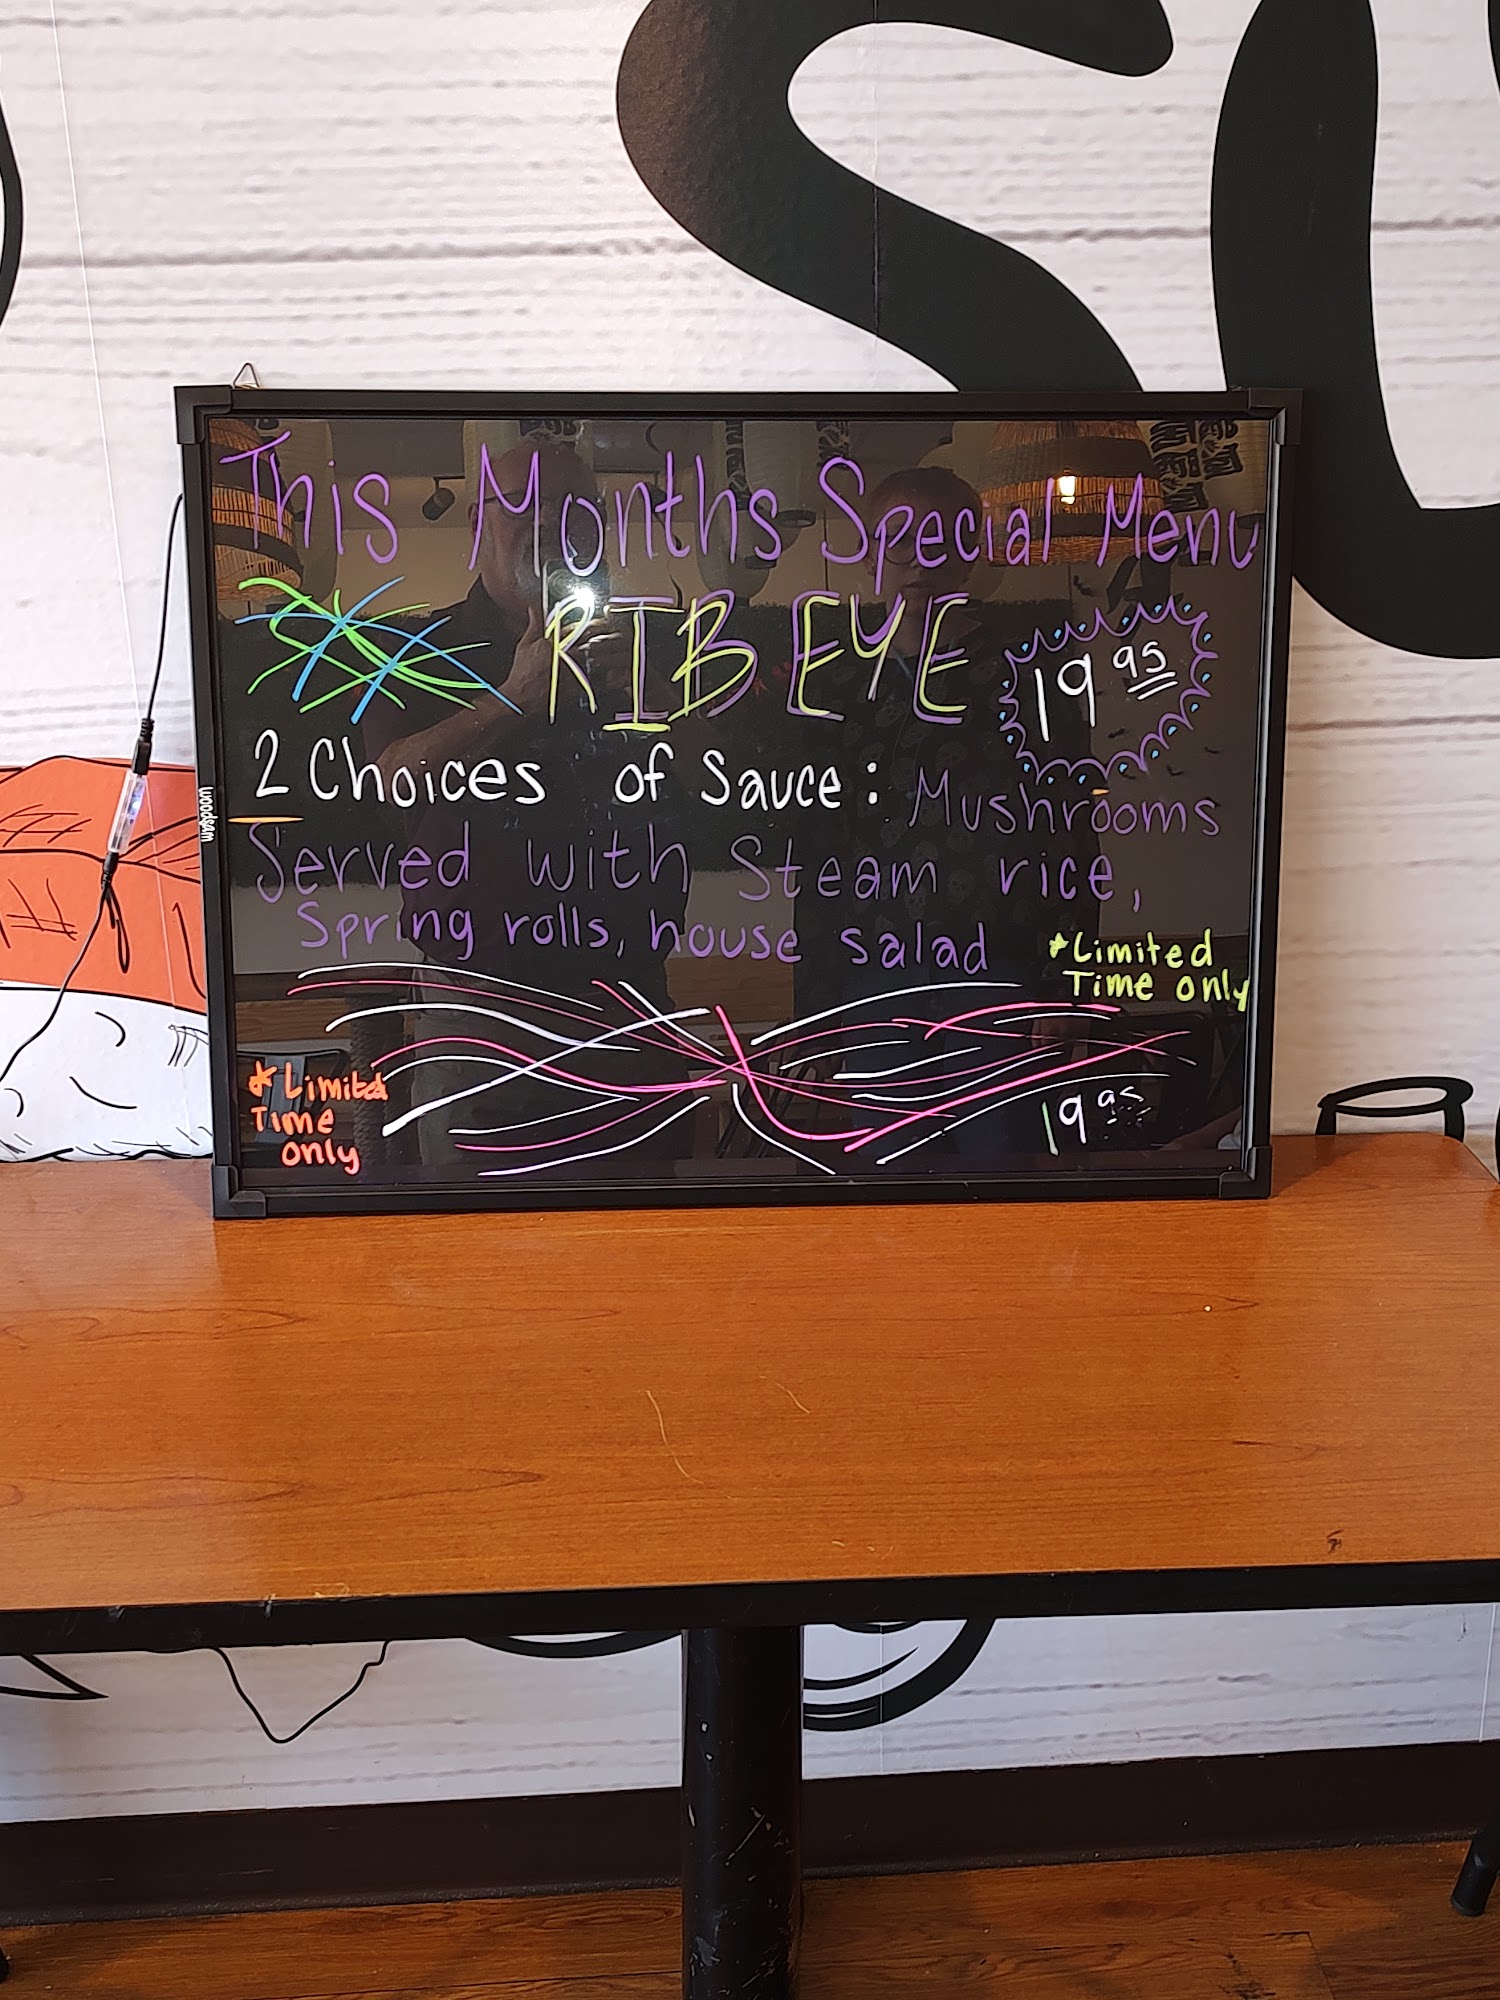 This Months Special Menu
RIB EYE
19 95
2 Choices of Sauce: Mushrooms
Served with Steam rice,
Spring rolls, house salad
*Limited
Time only
*Limited
Time
only
19 95
woodsam